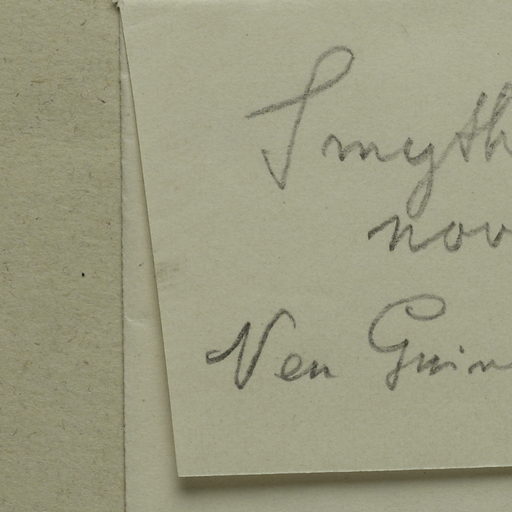 Smyth
nov
Neu Guin